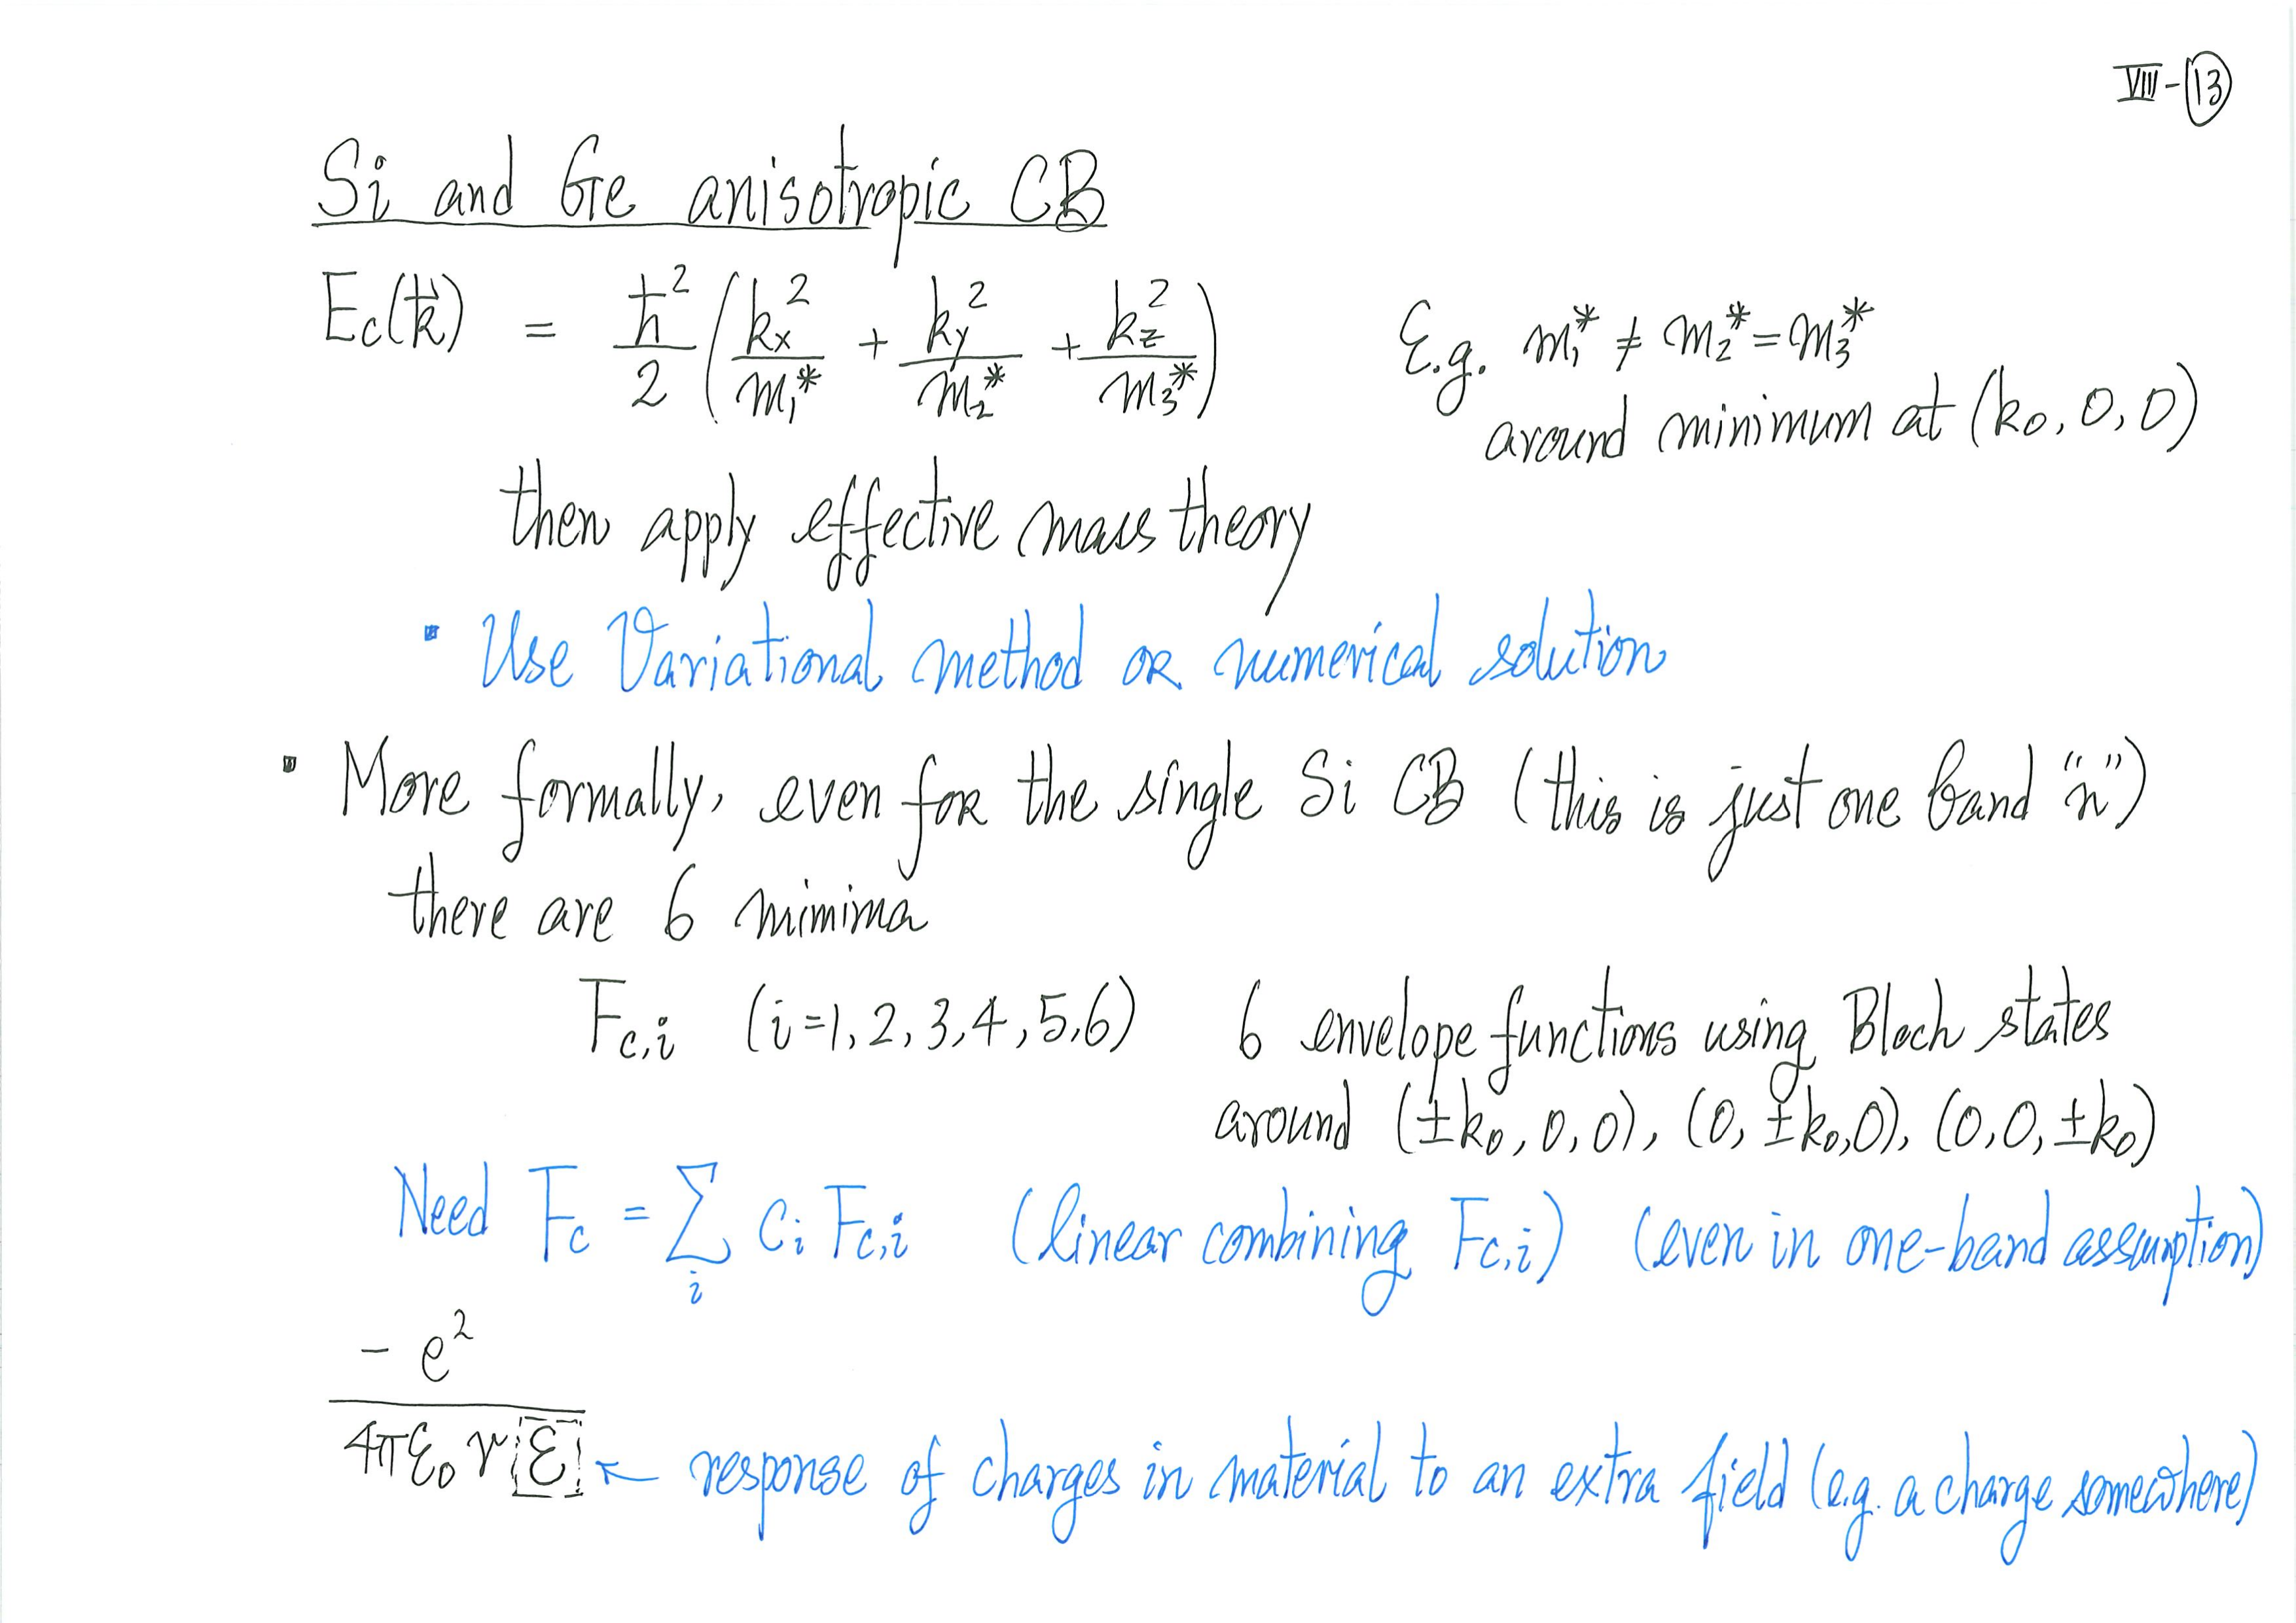 VIII-(13)
Si and Ge anisotropic CB
E_c(k⃗) = ħ²/2 (k_x²/m₁* + k_y²/m₂* + k_z²/m₃*) E.g. m₁* ≠ m₂* = m₃*
around minimum at (k₀, 0, 0)
then apply effective mass theory
▪ Use Variational method or numerical solution
▪ More formally, even for the single Si CB (this is just one band "n")
there are 6 minima
F_{c,i} (i=1,2,3,4,5,6) 6 envelope functions using Bloch states
around (±k₀, 0, 0), (0, ±k₀, 0), (0, 0, ±k₀)
Need F_c = Σ_i c_i F_{c,i} (linear combining F_{c,i}) (even in one-band assumption)
-e²/(4πε₀ r ε) ← response of charges in material to an extra field (e.g. a charge somewhere)